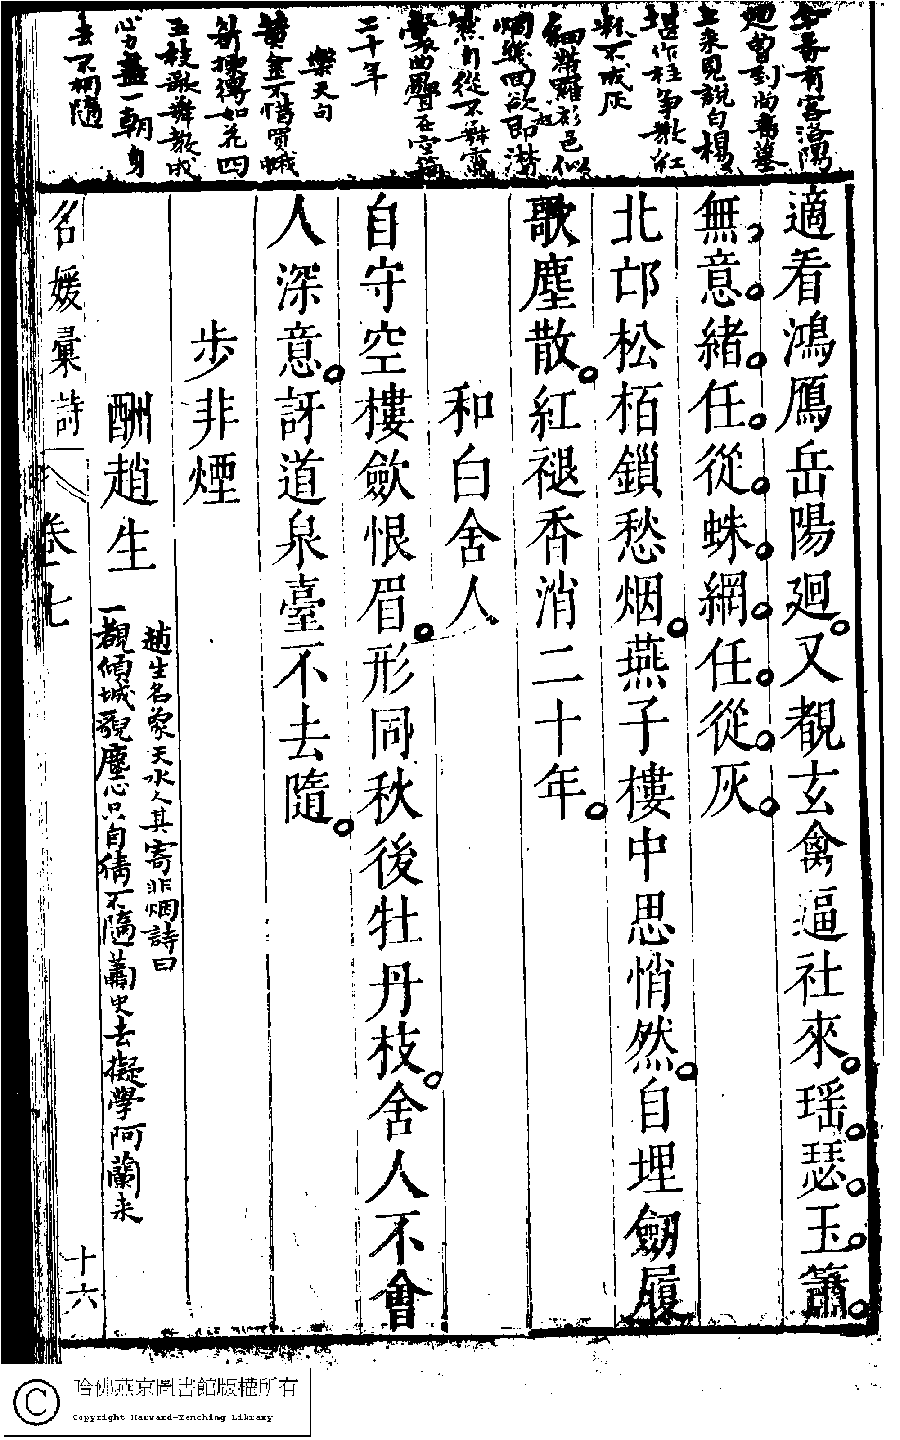 今春有客洛陽
廻曾到尚書墓
上來見說白楊
堪作柱爭教紅
粉不成灰
細帶羅衫色似
烟幾回欲起即潸
然自從不舞霓
裳曲疊在空箱
二十年
樂天句
黃金不惜買蛾
眉揀得如花四
五枝歌舞教成
心力盡一朝身
去不相隨
適看鴻鴈岳陽廻又覩玄禽逼社來瑶瑟玉簫
無意緒任從蛛網任從灰
北邙松栢鎖愁烟燕子樓中思悄然自埋劒履
歌塵散紅褪香消二十年
和白舍人
自守空樓歛恨眉形同秋後牡丹枝舍人不會
人深意訝道泉臺不去隨
步非煙
酬趙生
趙生名象天水人其寄非烟詩曰
一覩傾城貌塵心只自猜不隨蕭史去擬學阿蘭来
名媛彙詩
卷七
十六
哈佛燕京圖書館版權所有
Copyright Harvard-Yenching Library